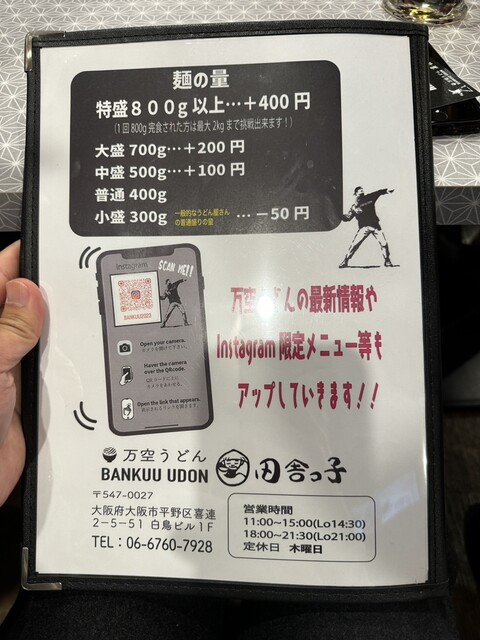 麺の量
特盛800g以上…+400円
(1回800g完食された方は最大2kgまで挑戦出来ます!)
大盛 700g…+200円
中盛 500g…+100円
普通 400g
小盛 300g 一般的なうどん屋さんの普通盛りの量 …-50円
Instagram
SCAN ME!!
BANKUUUDON
Open your camera.
カメラを開けて下さい。
Hover the camera
over the QRcode.
QRコードの上に
カメラをあわせる。
Open the link that appears.
表示されるリンクを開きます。
万空うどんの最新情報や
Instagram限定メニュー等も
アップしていきます!!
万空うどん
BANKUU UDON
田舎っ子
〒547-0027
大阪府大阪市平野区喜連
2-5-51 白鳥ビル1F
TEL:06-6760-7928
営業時間
11:00~15:00(Lo14:30)
18:00~21:30(Lo21:00)
定休日 木曜日